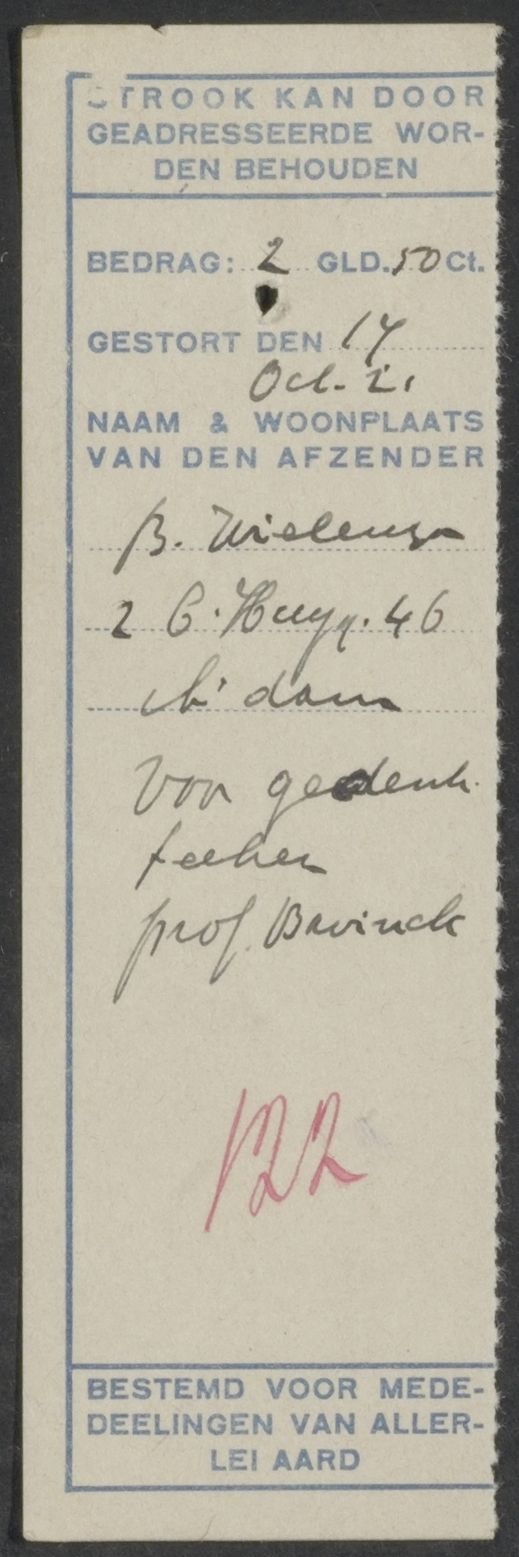 STROOK KAN DOOR
GEADRESSEERDE WOR-
DEN BEHOUDEN
BEDRAG: 2 GLD. 50 Ct.
GESTORT DEN 14
Oct. 21
NAAM & WOONPLAATS
VAN DEN AFZENDER
B. Wielenga
2 C. Huyg. 46
A'dam
Voor gedenk
teeken
prof. Bavinck
122
BESTEMD VOOR MEDE-
DEELINGEN VAN ALLER-
LEI AARD